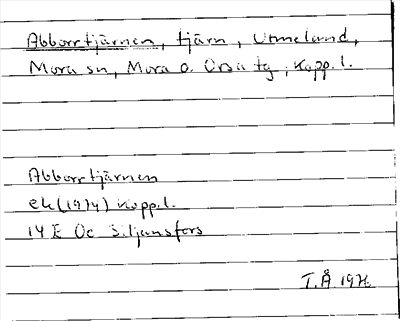 Abborrtjärnen, tjärn, Utmeland,
Mora sn, Mora o. Orsa tg, Kopp. l.
Abborrtjärnen
ek(1974) Kopp.l.
14 E Oc Siljansfors
T.Å 1976